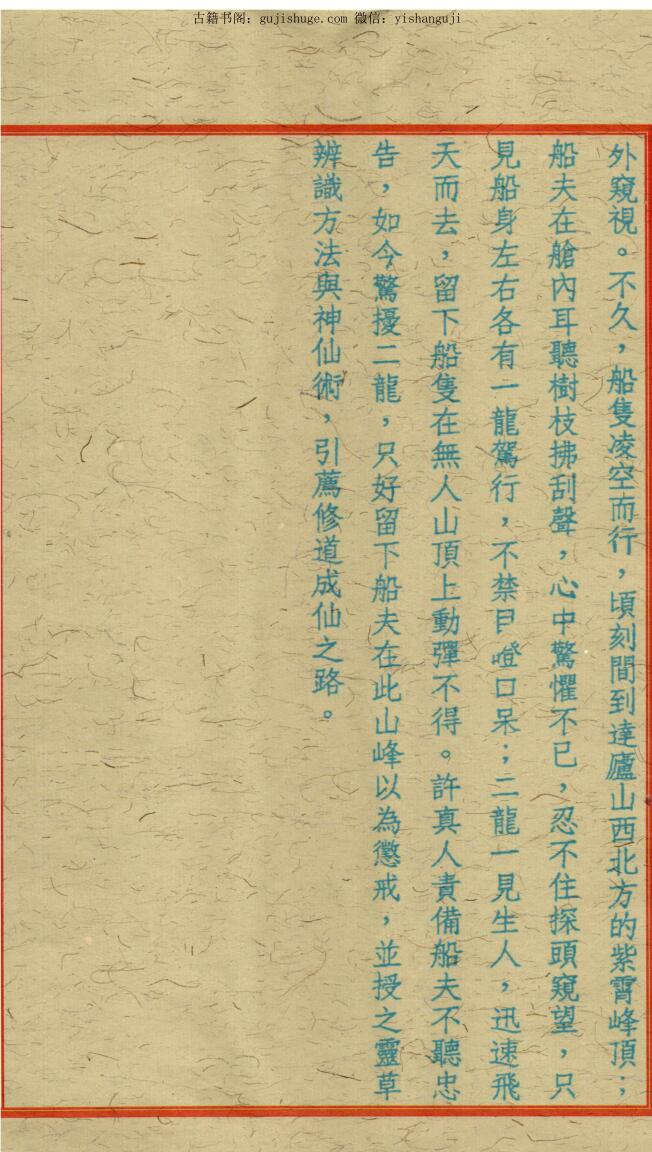 古籍书阁：gujishuge.com 微信：yishanguji
外窺視。不久，船隻凌空而行，頃刻間到達廬山西北方的紫霄峰頂；
船夫在艙內耳聽樹枝拂刮聲，心中驚懼不已，忍不住探頭窺望，只
見船身左右各有一龍駕行，不禁目瞪口呆；二龍一見生人，迅速飛
天而去，留下船隻在無人山頂上動彈不得。許真人責備船夫不聽忠
告，如今驚擾二龍，只好留下船夫在此山峰以為懲戒，並授之靈草
辨識方法與神仙術，引薦修道成仙之路。